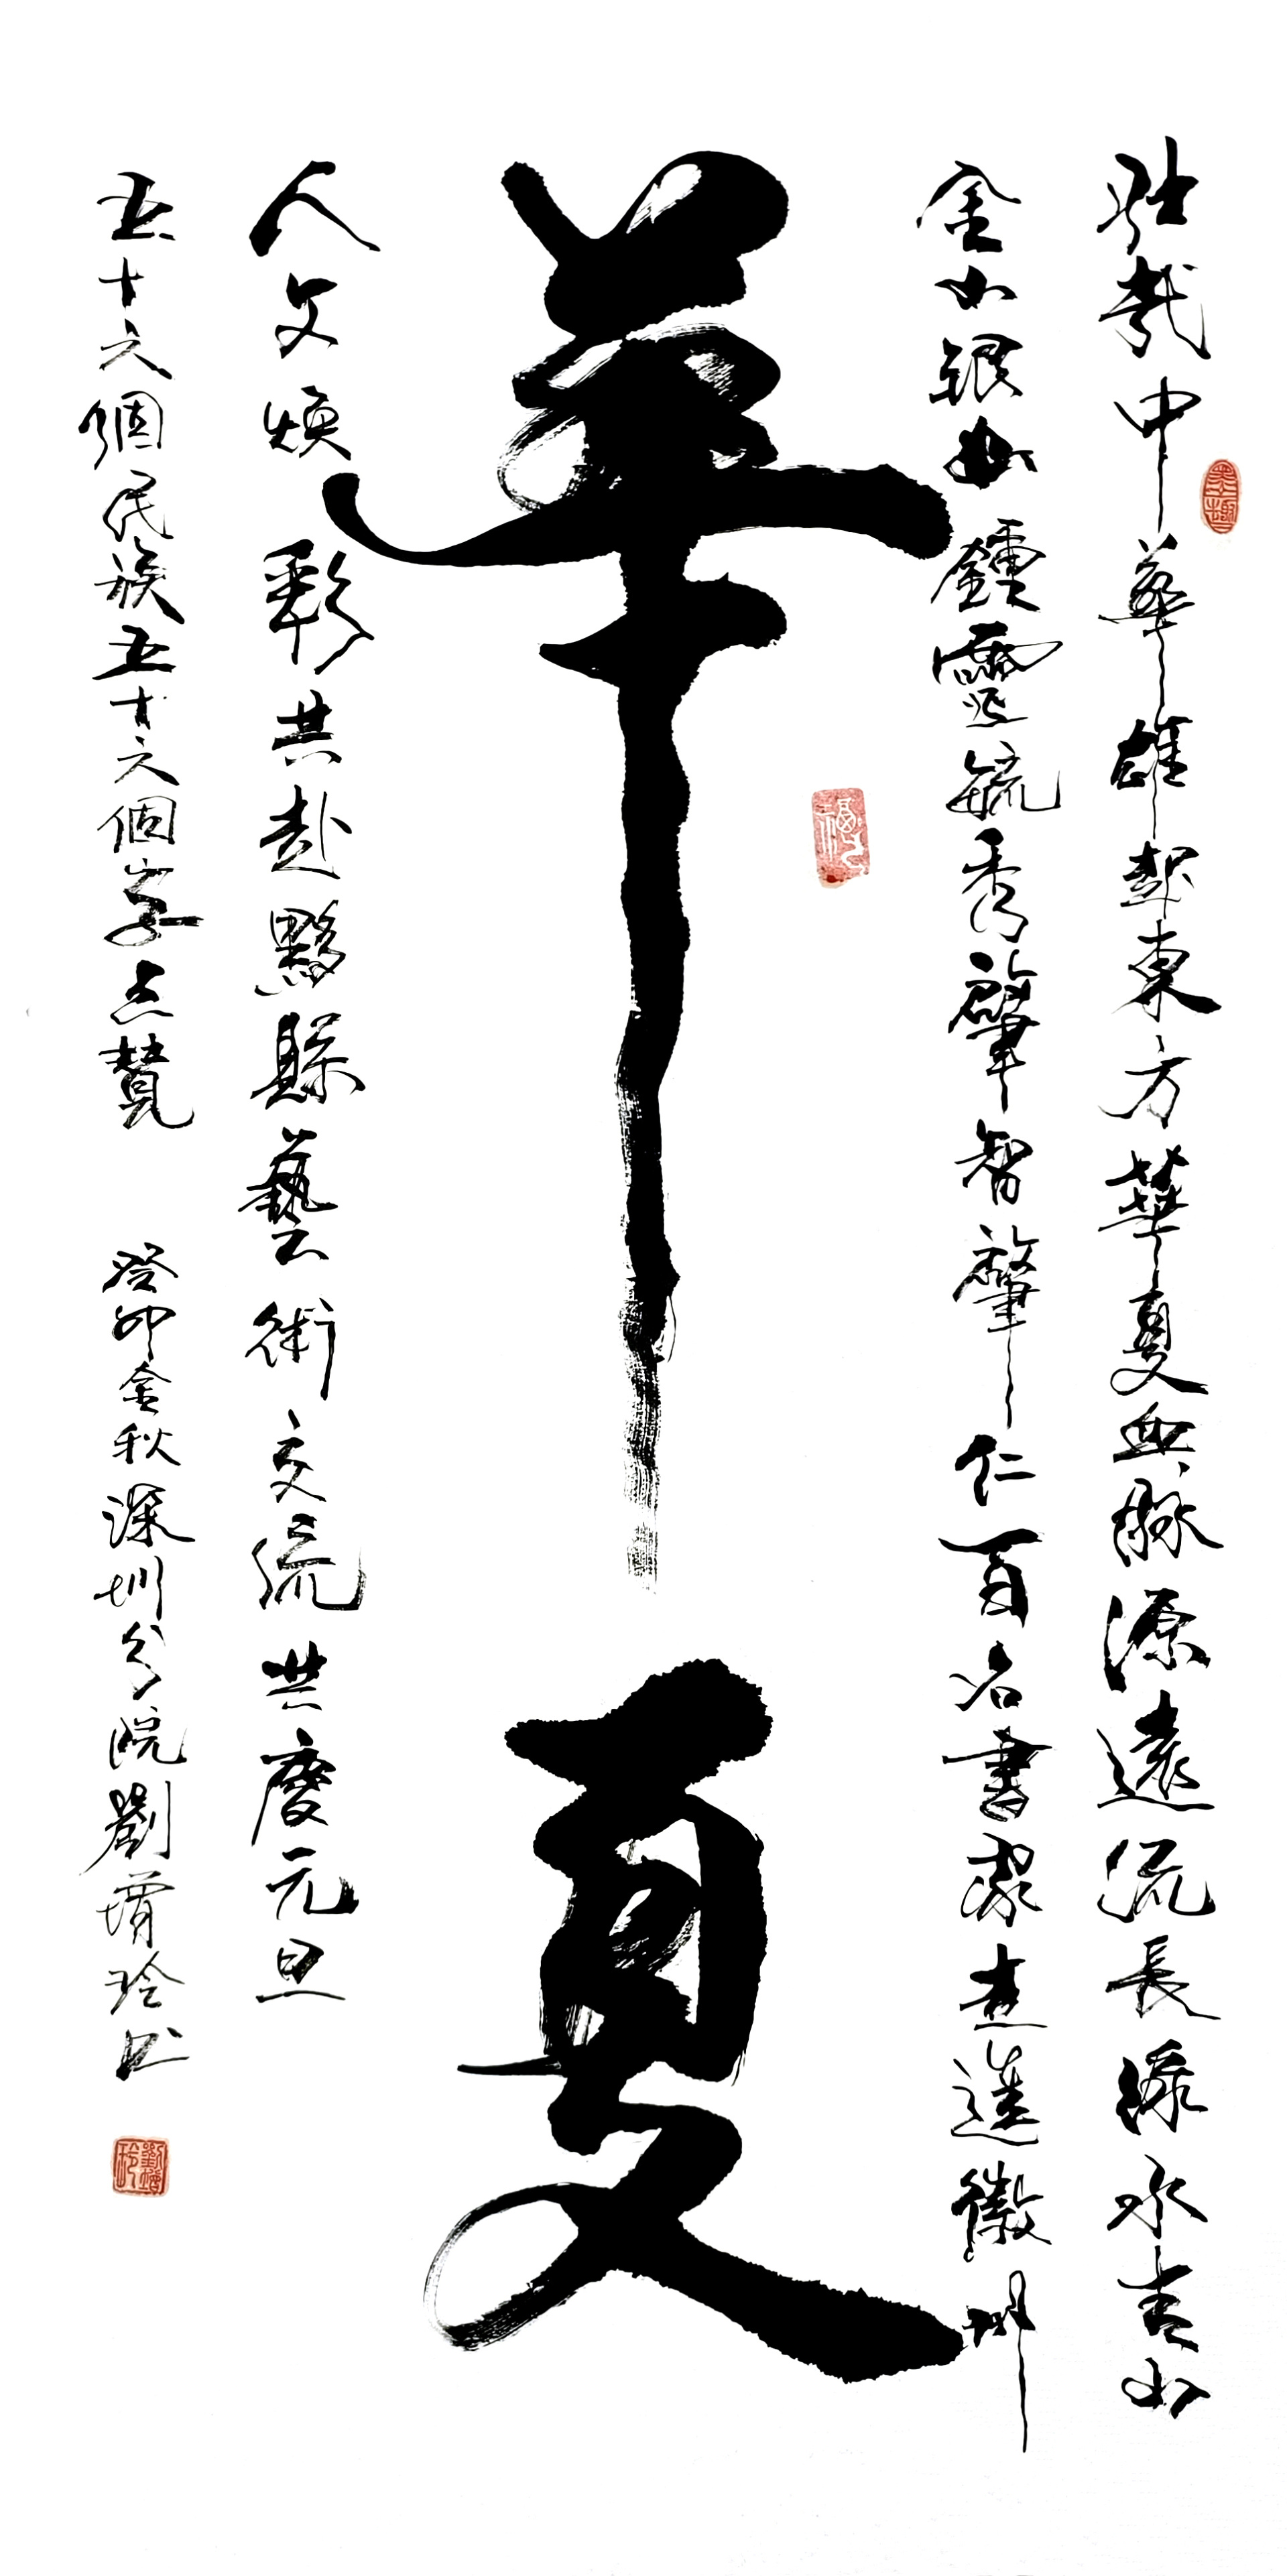 壯哉中華雄起東方華夏血脉源遠流長綠水青山
金山銀山鍾靈毓秀肇智肇仁百名書家走進徽州
華夏
人文煥彩共赴黟縣藝術交流共慶元旦
五十六個民族五十六個字点贊 癸卯金秋深圳分院劉增玲书
墨趣